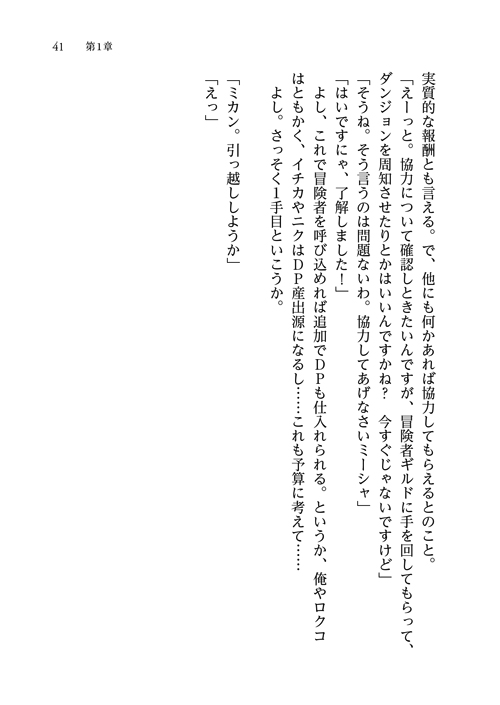 41　第1章
実質的な報酬とも言える。で、他にも何かあれば協力してもらえるとのこと。
「えーっと。協力について確認しときたいんですが、冒険者ギルドに手を回してもらって、
ダンジョンを周知させたりとかはいいんですかね？　今すぐじゃないですけど」
「そうね。そう言うのは問題ないわ。協力してあげなさいミーシャ」
「はいですにゃ、了解しました！」
　よし、これで冒険者を呼び込めれば追加でＤＰも仕入れられる。というか、俺やロクコ
はともかく、イチカやニクはＤＰ産出源になるし……これも予算に考えて……
　よし。さっそく１手目といこうか。
「ミカン。引っ越ししようか」
「えっ」